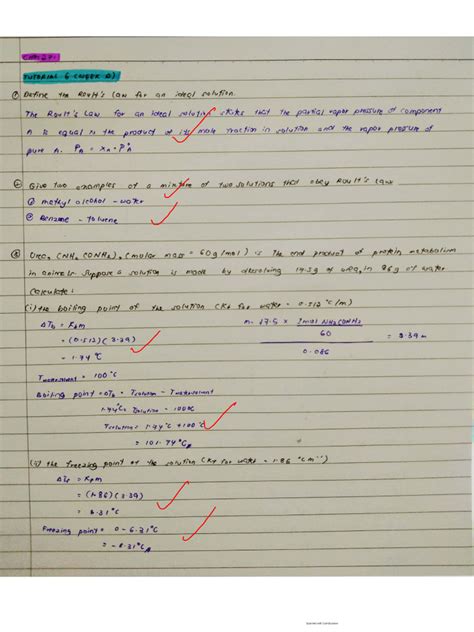 TUTORIAL 6
① Define the Roult's Law for an ideal solution.
The Roult's Law for an ideal solution states that the partial vapor pressure of component
A is equal to the product of its mole fraction in solution and the vapor pressure of
pure A. PA = XA · P°A
Give two examples of a mixture of two solutions that obey Roult's Law
① methyl alcohol - water
② Benzene - toluene
Urea, (NH2 CONH2), (molar mass = 60g/mol) is the end product of protein metabolism
in animals. Suppose a solution is made by dissolving 17.5g of urea, in 86g of water
Calculate:
(i) the boiling point of the solution (Kb for water = 0.512 °C/m)
ΔTb = Kbm
= (0.512)(3.39)
= 1.74 °C
m = 17.5 × 1mol NH2CONH2
60
0.086
= 3.39m
= 100°C
Boiling point = ΔTb = Tsolution - Twatersolvent
1.74°C = Tsolution - 100°C
Tsolution = 1.74°C + 100°C
= 101.74°C
(ii) the freezing point of the solution (Kf for water = 1.86 °Cm⁻¹)
ΔTf = Kfm
= (1.86)(3.39)
= 6.31°C
Freezing point = 0 - 6.31°C
= -6.31°C